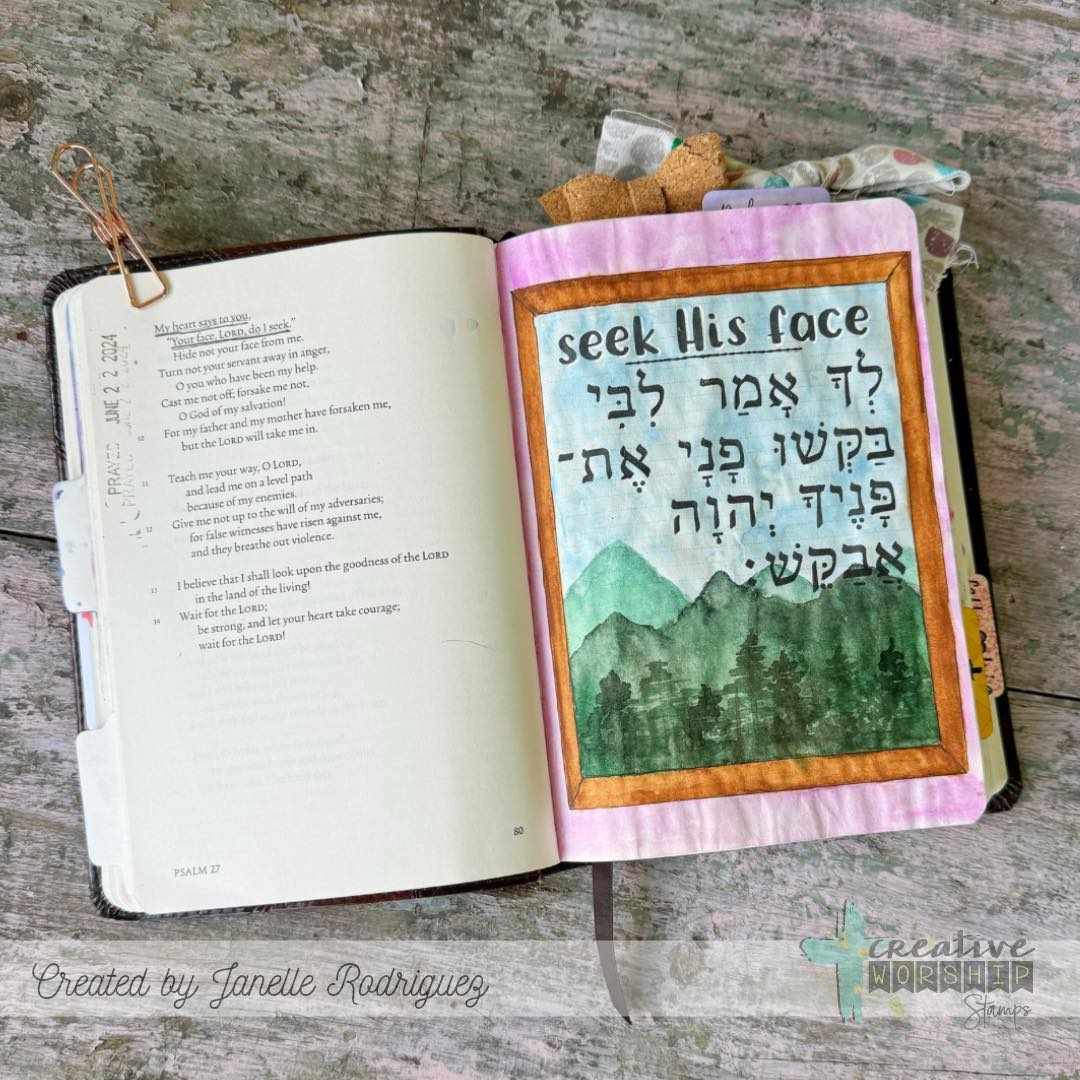 My heart says to you,
"Your face, LORD, do I seek."
Hide not your face from me.
Turn not your servant away in anger,
O you who have been my help.
Cast me not off; forsake me not,
O God of my salvation!
10 For my father and my mother have forsaken me,
but the LORD will take me in.
11 Teach me your way, O LORD,
and lead me on a level path
because of my enemies.
12 Give me not up to the will of my adversaries;
for false witnesses have risen against me,
and they breathe out violence.
13 I believe that I shall look upon the goodness of the LORD
in the land of the living!
14 Wait for the LORD;
be strong, and let your heart take courage;
wait for the LORD!
80
PSALM 27
PRAYED JUNE 22 2024
seek His face
לְךָ אָמַר לִבִּי
בַּקְּשׁוּ פָנָי אֶת־
פָּנֶיךָ יְהוָה
אֲבַקֵּשׁ׃
Created by Janelle Rodriguez
creative
WORSHIP
Stamps